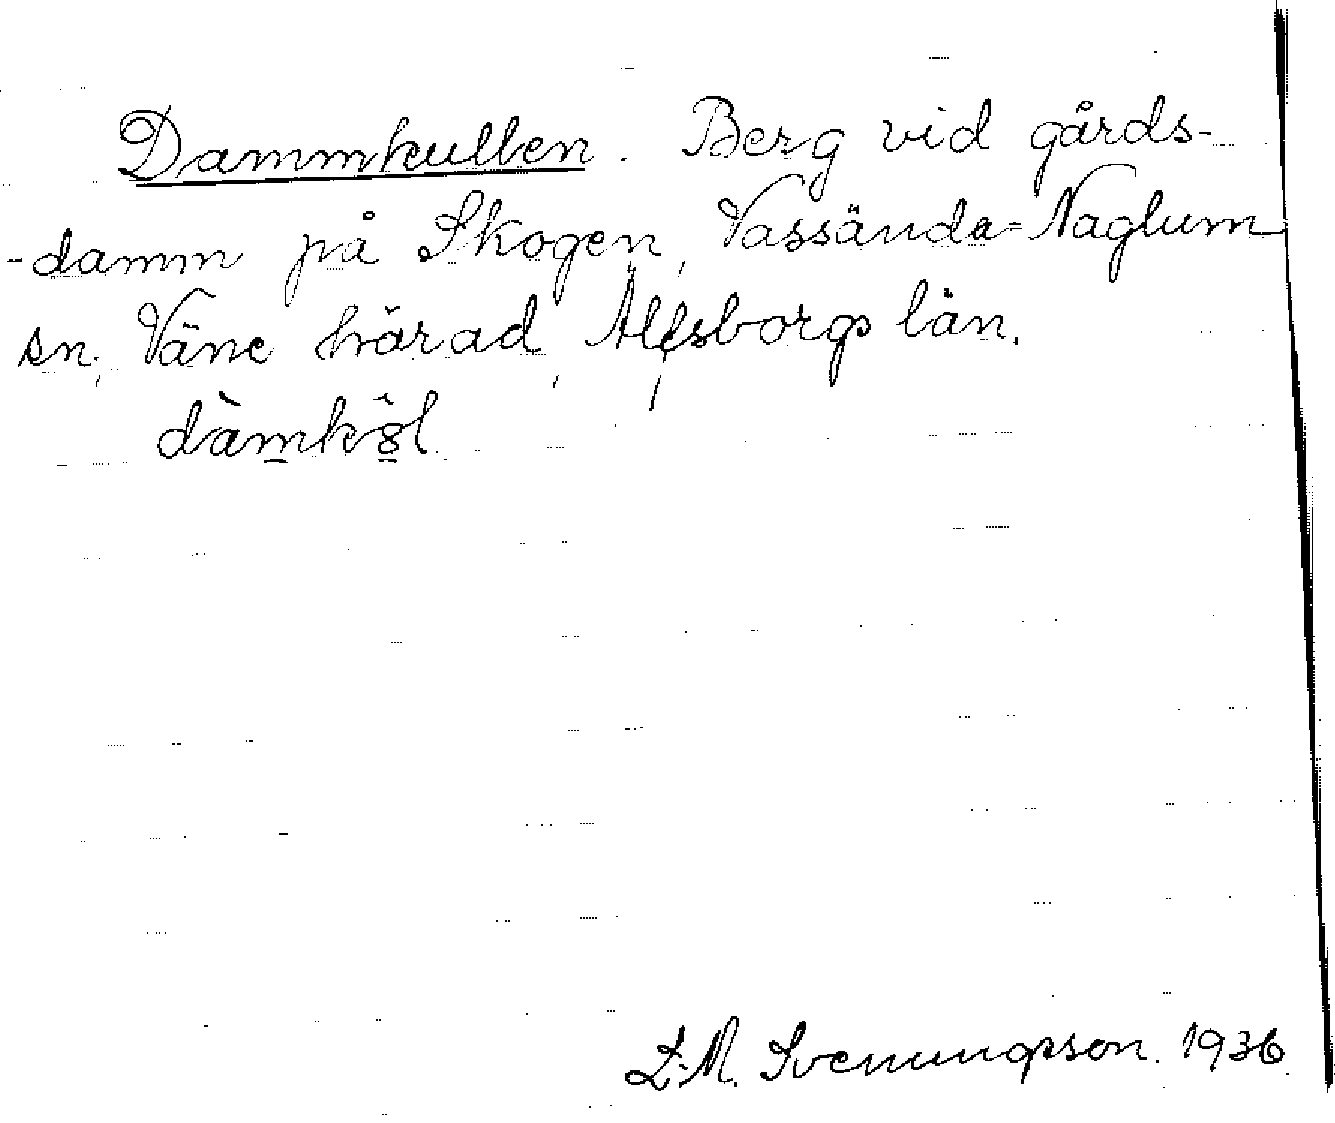 Dammkullen. Berg vid gårds-
-damm på Skogen, Vassända-Naglum
sn, Väne härad, Älfsborgs län.
dàmköl
L. M. Svenungsson. 1936